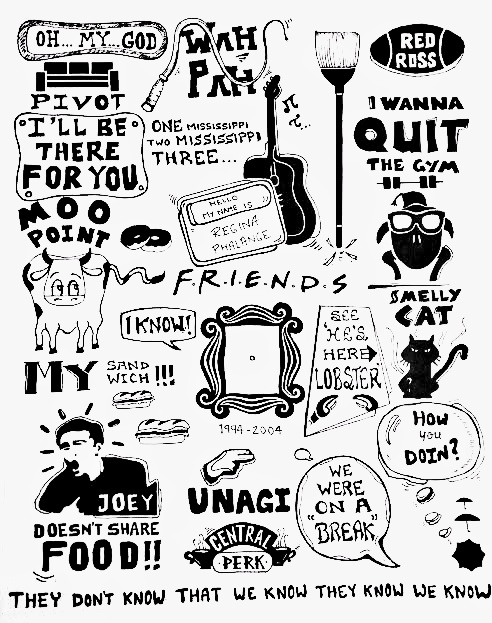 OH... MY.. GOD
WAH
PAH
RED
ROSS
PIVOT
"I'LL BE
THERE
FOR YOU"
ONE MISSISSIPPI
TWO MISSISSIPPI
THREE...
I WANNA
QUIT
THE GYM
HELLO
MY NAME IS
REGINA
PHALANGE
MOO
POINT
F.R.I.E.N.D.S
SMELLY
CAT
I KNOW!
SEE
'HE'S
HER
LOBSTER
MY SAND
WICH !!!
1994-2004
HOW
you
DOIN?
JOEY
DOESN'T SHARE
FOOD!!
UNAGI
WE
WERE
ON A
"BREAK"
CENTRAL
PERK
THEY DON'T KNOW THAT WE KNOW THEY KNOW WE KNOW